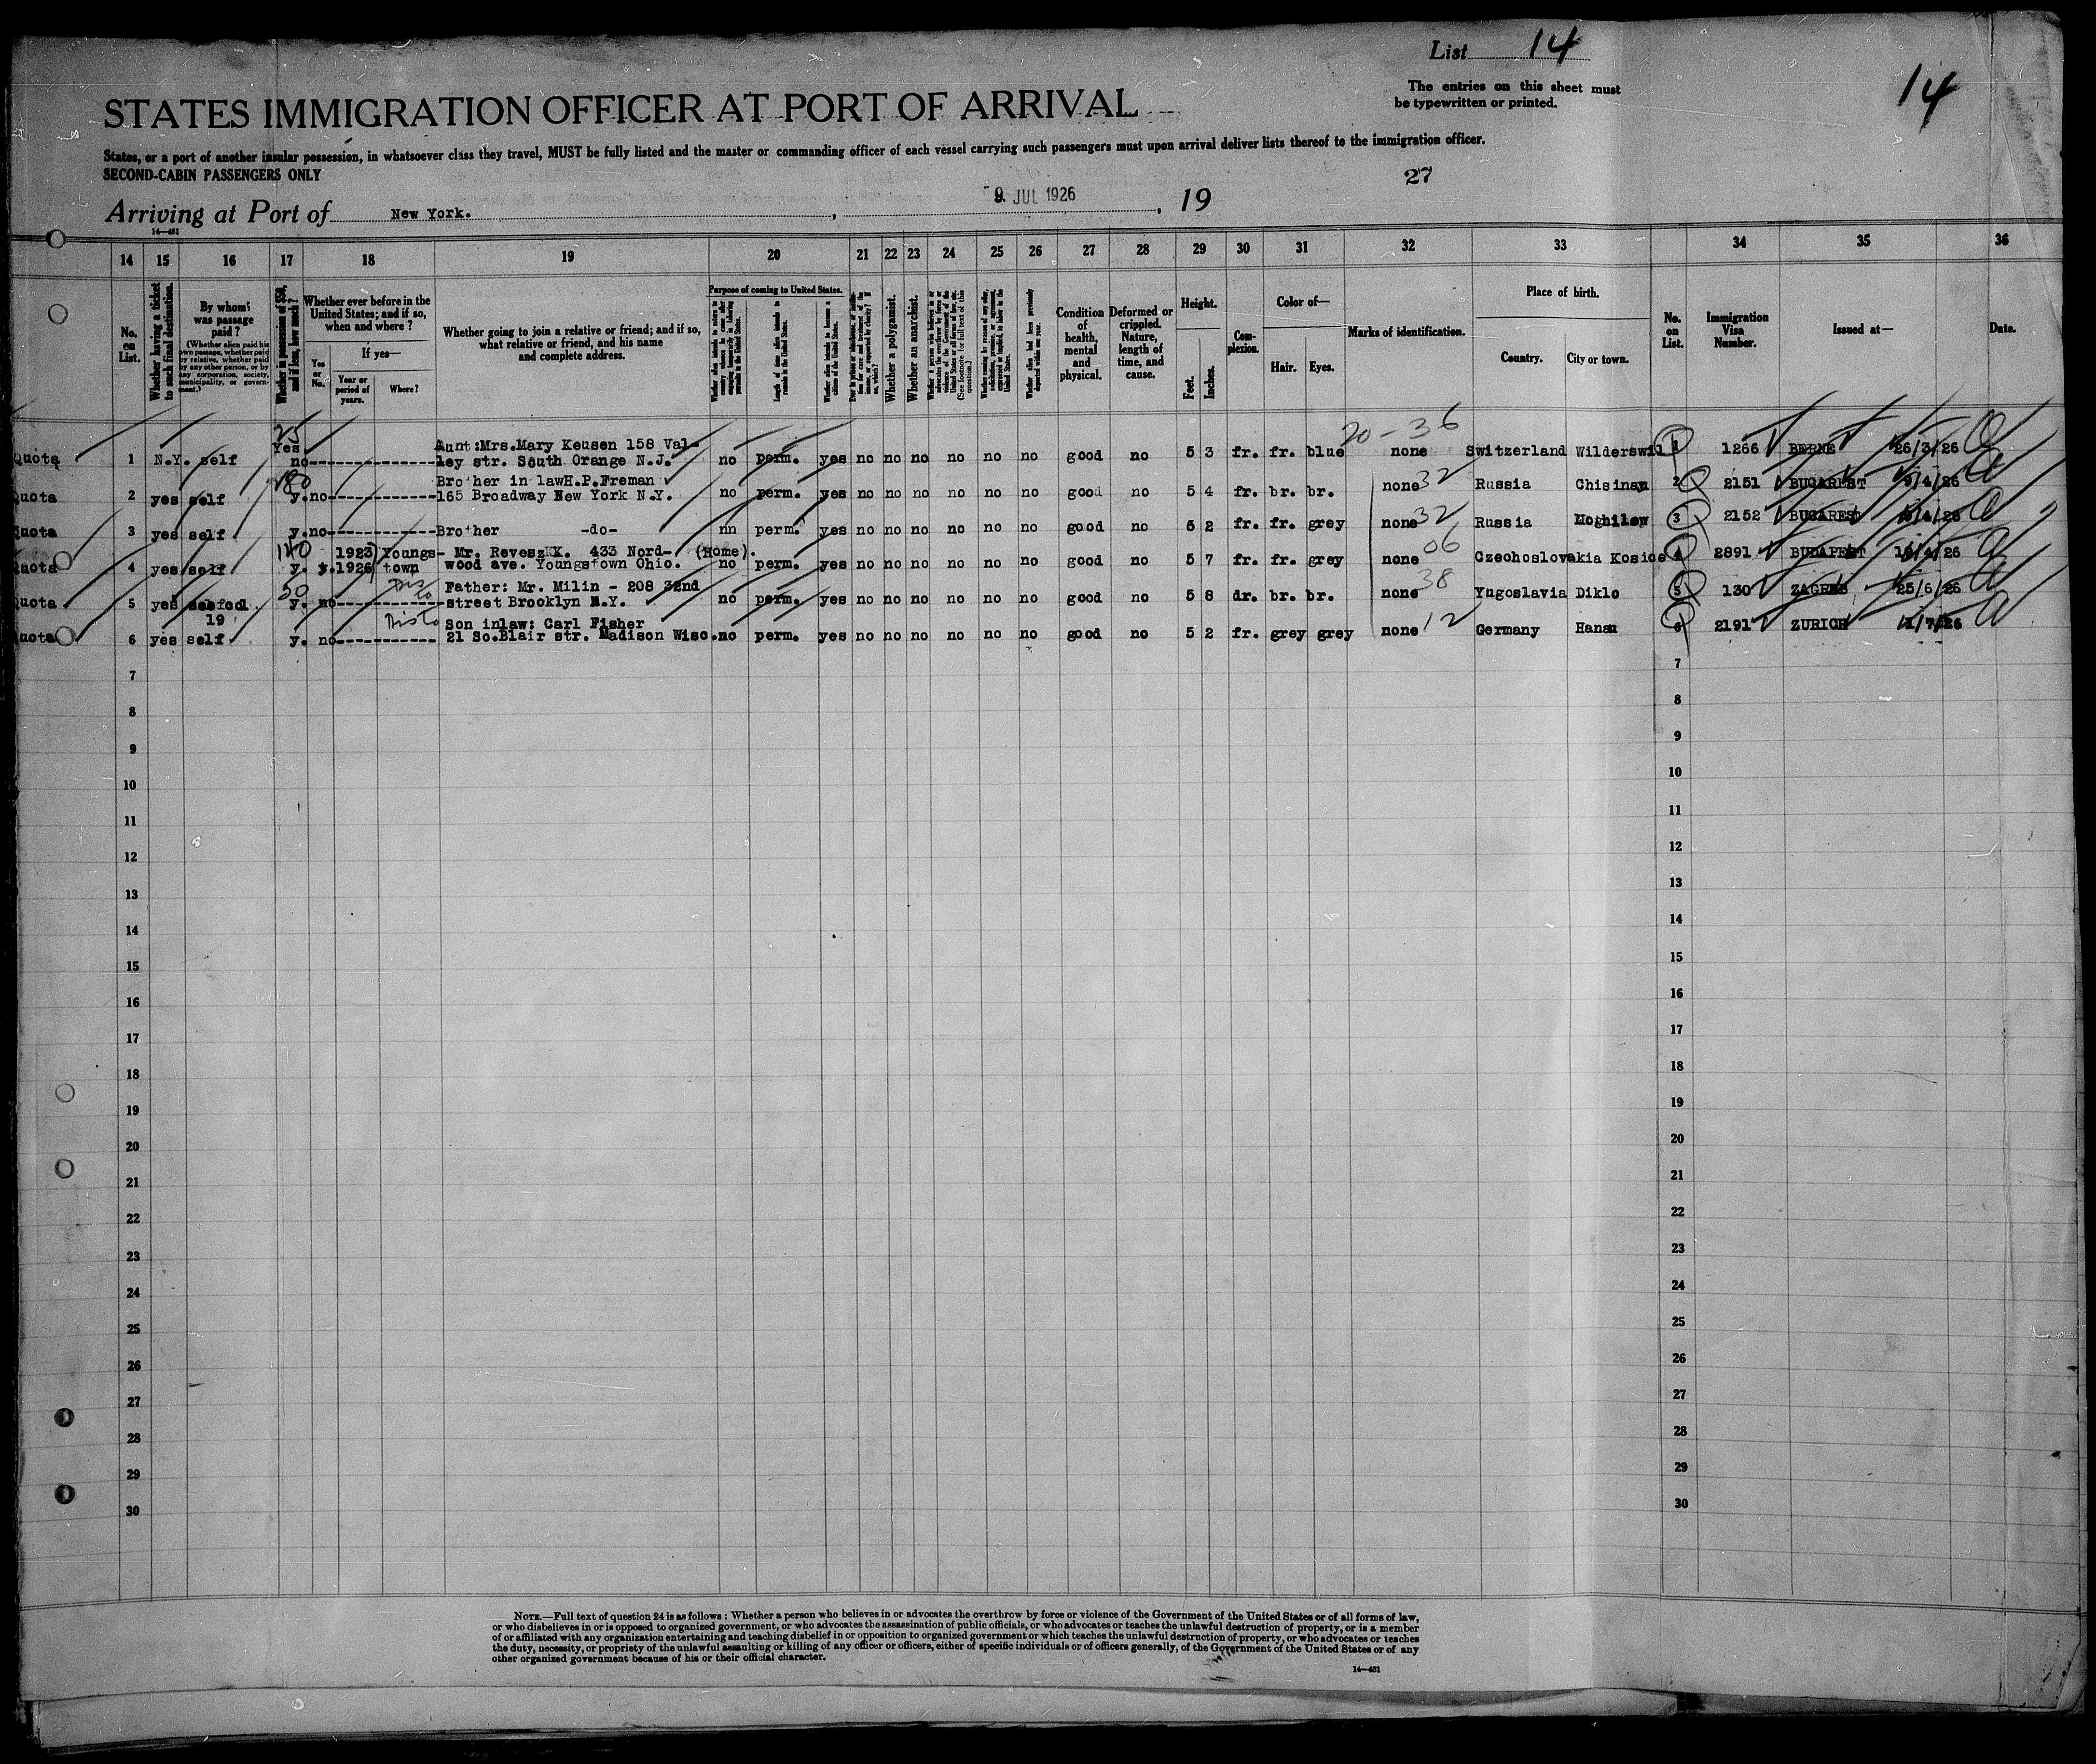 List 14
The entries on this sheet must
be typewritten or printed.
14
STATES IMMIGRATION OFFICER AT PORT OF ARRIVAL
States, or a port of another insular possession, in whatsoever class they travel, MUST be fully listed and the master or commanding officer of each vessel carrying such passengers must upon arrival deliver lists thereof to the immigration officer.
SECOND-CABIN PASSENGERS ONLY
27
Arriving at Port of New York. , 9. JUL 1926 , 19
14—431
14 15 16 17 18 19 20 21 22 23 24 25 26 27 28 29 30 31 32 33 34 35 36
No. on List.
Whether having a ticket to such final destination.
By whom was passage paid?
(Whether alien paid his own passage, whether paid by relative, whether paid by any other person, or by any corporation, society, municipality, or government.)
Whether in possession of $50, and if less, how much?
Whether ever before in the United States; and if so, when and where?
Yes or No.
If yes—
Year or period of years.
Where?
Whether going to join a relative or friend; and if so, what relative or friend, and his name and complete address.
Purpose of coming to United States.
Length of time alien intends to remain in the United States.
Whether alien intends to become a citizen of the United States.
Whether a polygamist.
Whether an anarchist.
(See footnote for full text of this question.)
Whether alien had been previously deported within one year.
Condition of health, mental and physical.
Deformed or crippled. Nature, length of time, and cause.
Height.
Feet. Inches.
Complexion.
Color of—
Hair. Eyes.
Marks of identification.
Place of birth.
Country. City or town.
No. on List.
Immigration Visa Number.
Issued at—
Date.
20-36
25
Yes Aunt:Mrs.Mary Keusen 158 Val-
Quota 1 N.Y. self no------------- ley str. South Orange N.J. no perm. yes no no no no no no good no 5 3 fr. fr. blue none Switzerland Wilderswil 1 1266 BERNE 26/3/26
180 Brother in lawH.P.Freman
Quota 2 yes self y.no------------ 165 Broadway New York N.Y. no perm. yes no no no no no no good no 5 4 fr. br. br. none 32 Russia Chisinau 2 2151 BUCAREST 9/4/26
Quota 3 yes self y.no------------Brother -do- nn perm. yes no no no no no no good no 5 2 fr. fr. grey none 32 Russia Mothilew 3 2152 BUCAREST 26
140 1923) Youngs- Mr. Revesz K. 433 Nord- (Home).
Quota 4 yes self y. y.1926) town wood ave. Youngstown Ohio. no perm. yes no no no no no no good no 5 7 fr. fr. grey none 06 Czechoslovakia Kosice 4 2891 BUDAPEST 26
50 Father: Mr. Milin - 208 32nd
Quota 5 yes y. no-----------street Brooklyn N.Y. no perm. yes no no no no no no good no 5 8 dr. br. br. none 38 Yugoslavia Diklo 5 130 ZAGREB 25/6/26
19 Son inlaw: Carl Fisher
Quota 6 yes self y. no----------- 21 So.Blair str. Madison Wisc.no perm. yes no no no no no no good no 5 2 fr. grey grey none 12 Germany Hanau 6 2191 ZURICH 1/7/26
7 7
8 8
9 9
10 10
11 11
12 12
13 13
14 14
15 15
16 16
17 17
18 18
19 19
20 20
21 21
22 22
23 23
24 24
25 25
26 26
27 27
28 28
29 29
30 30
NOTE.—Full text of question 24 is as follows: Whether a person who believes in or advocates the overthrow by force or violence of the Government of the United States or of all forms of law,
or who disbelieves in or is opposed to organized government, or who advocates the assassination of public officials, or who advocates or teaches the unlawful destruction of property, or is a member
of or affiliated with any organization entertaining and teaching disbelief in or opposition to organized government or which teaches the unlawful destruction of property, or who advocates or teaches
the duty, necessity, or propriety of the unlawful assaulting or killing of any officer or officers, either of specific individuals or of officers generally, of the Government of the United States or of any
other organized government because of his or their official character.
14—431